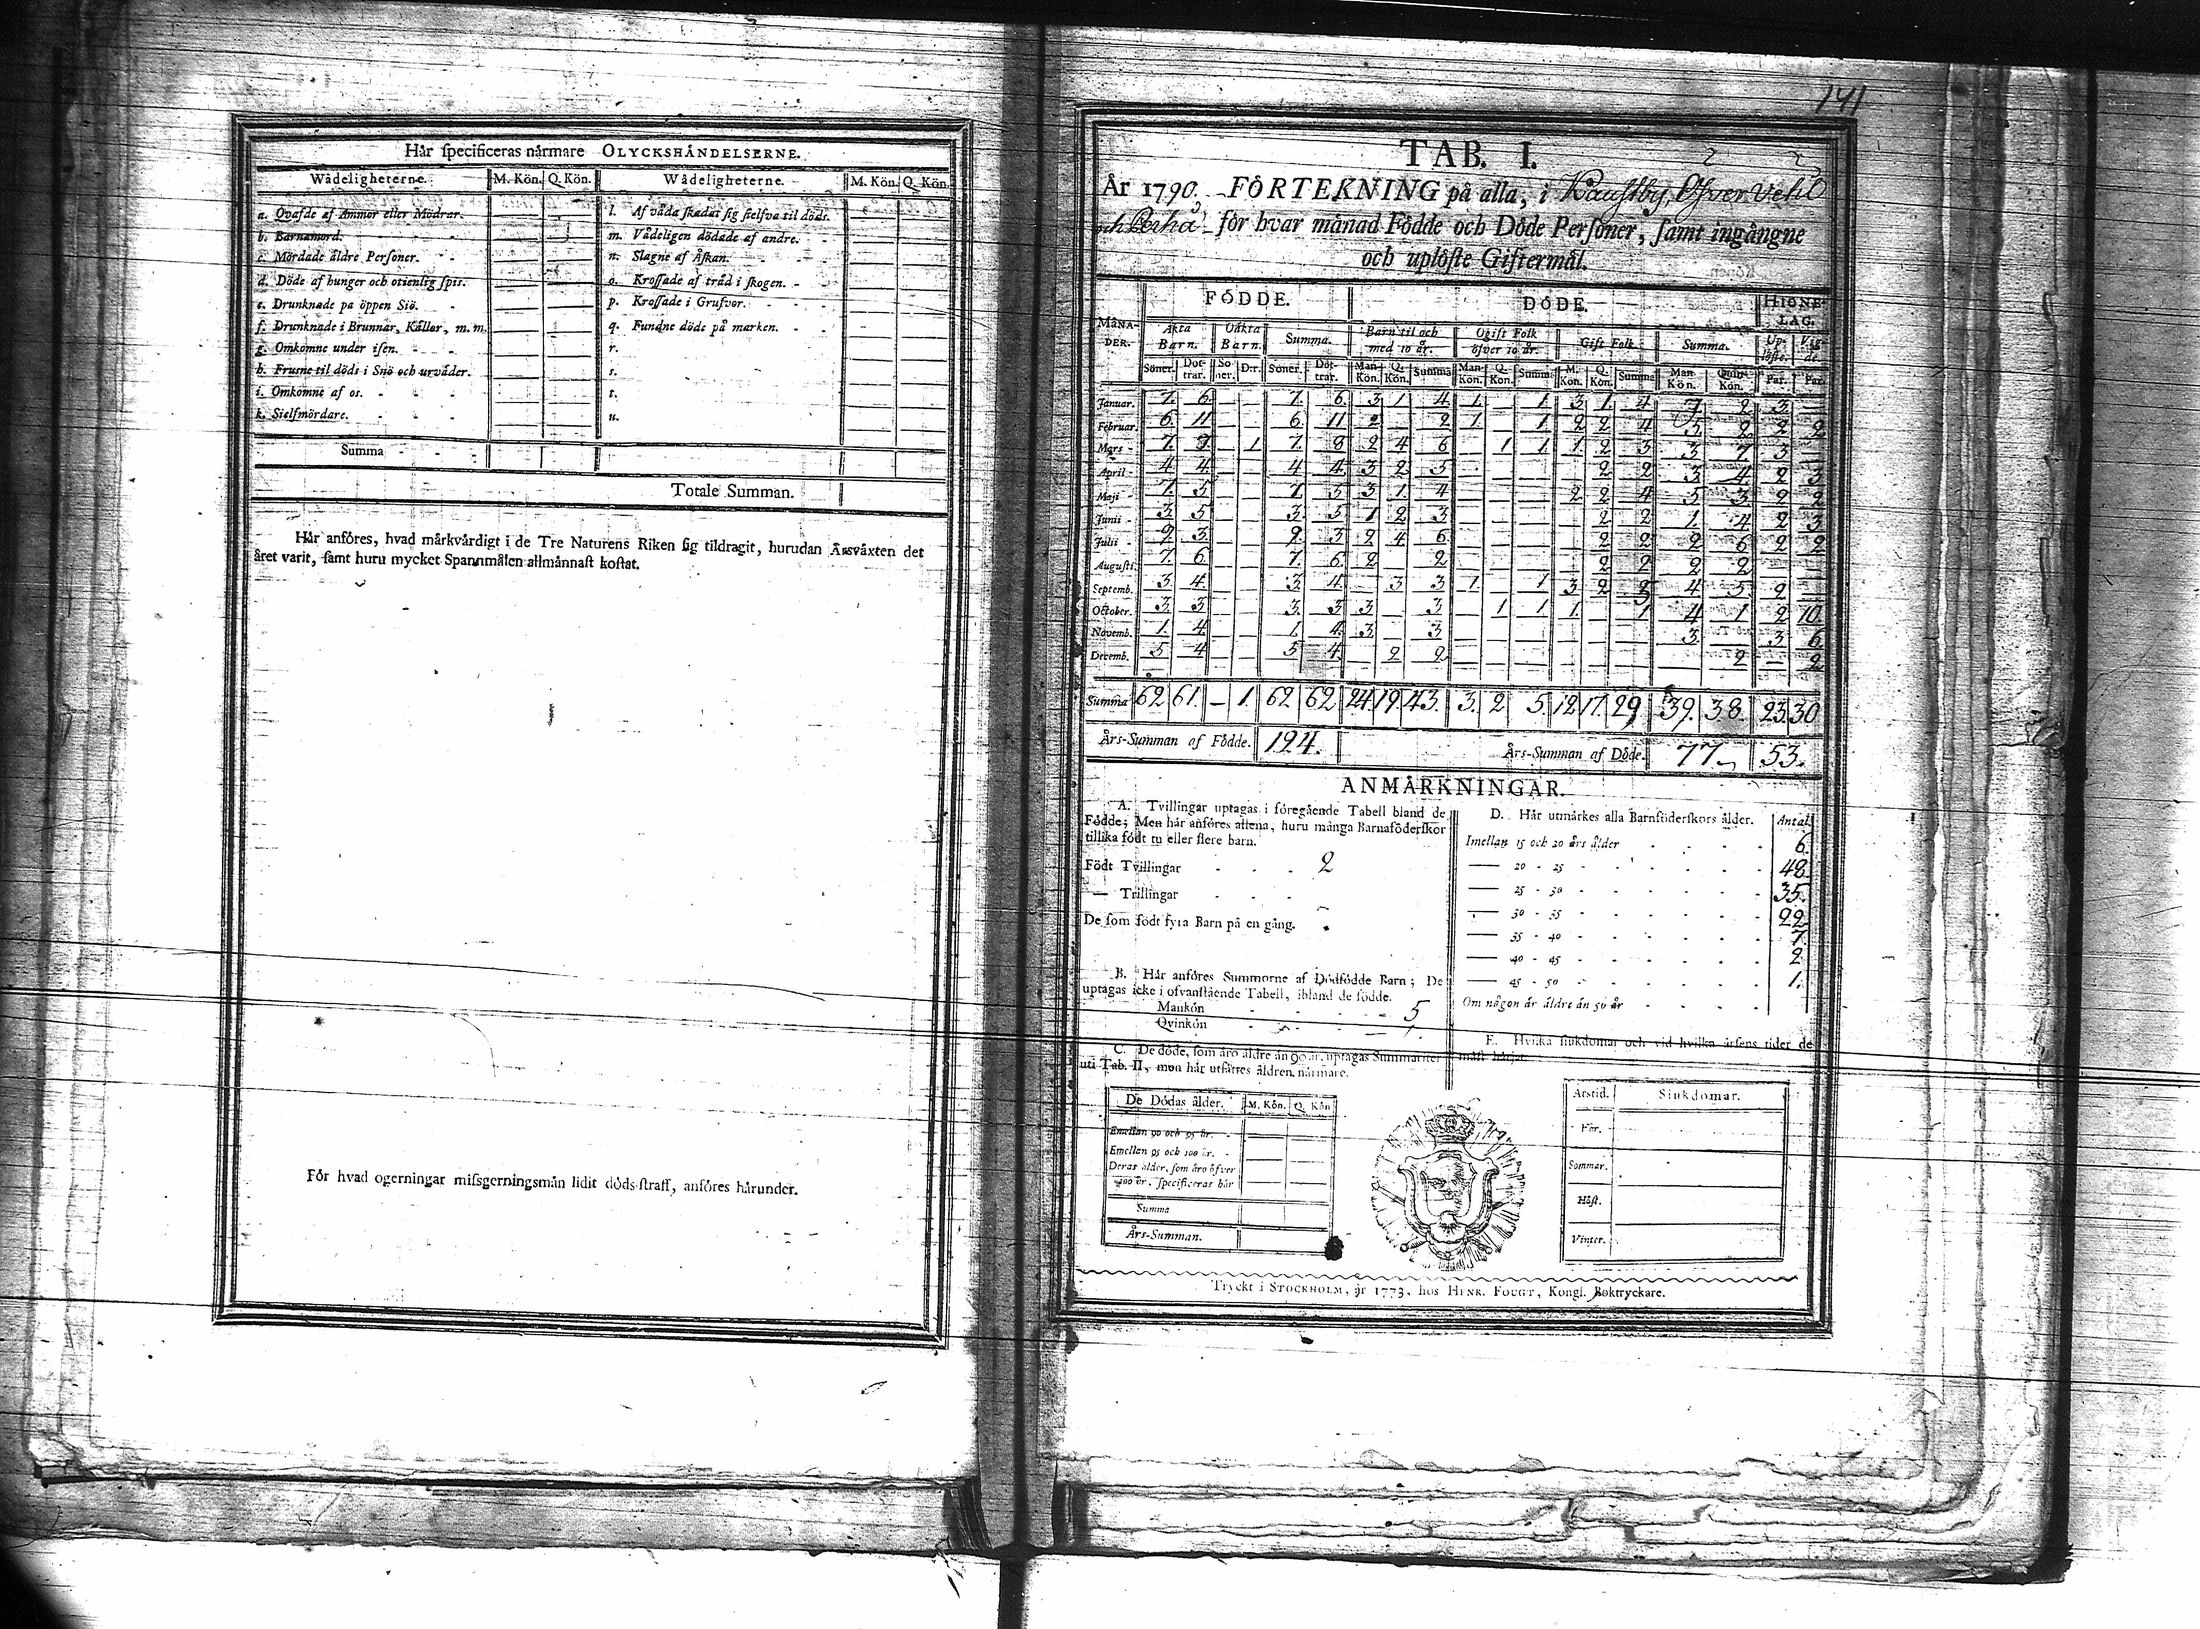 Hår specificeras nårmare OLYCKSHÅNDELSERNE.
Wådeligheterne. M. Kön. Q. Kön. Wådeligheterne. M. Kön. Q. Kön.
a. Qvafde af Ammor eller Mödrar. l. Af våda skadat sig sielfva til döds.
b. Barnamord. m. Vådeligen dödade af andre.
c. Mördade äldre Personer. n. Slagne af Åskan.
d. Döde af hunger och otienlig spis. o. Krossade af träd i skogen.
e. Drunknade på öppen Siö. p. Krossade i Grufvor.
f. Drunknade i Brunnar, Källor, m. m. q. Fundne döde på marken.
g. Omkomne under isen. r.
h. Frusne til döds i Snö och urväder. s.
i. Omkomne af os. t.
k. Sielfmördare. u.
Summa
Totale Summan.
Hår anföres, hvad mårkvårdigt i de Tre Naturens Riken sig tildragit, hurudan Årsvåxten det
året varit, samt huru mycket Spannmålen allmånnast kostat.
För hvad ogerningar missgerningsmån lidit döds-straff, anföres hårunder.
141
TAB. I.
År 1790. FÖRTEKNING på alla, i Kaustby, Öfver Vetil
och Perho för hvar månad Födde och Döde Personer, samt ingångne
och uplöste Giftermål.
FÖDDE. DÖDE. HIONE-LAG.
MÅNA-DER. Äkta Barn. Oäkta Barn. Summa. Barn til och med 10 år. Ogift Folk öfver 10 år. Gift Folk. Summa. Up-löste. Vig-de.
Söner. Dot-trar. So-ner. D:r. Söner. Döt-trar. Man-Kön. Q. Kön. Summa Man-Kön. Q. Kön. Summa M. Kön. Q. Kön. Summa Man Kön. Quin Kön. Par. Par.
Januar. 7. 6. 7. 6 3 1 4 1. 1. 3 1. 4 7 2 3
Februar. 6. 11 6. 11 2 2 1. 1 2 2 4 5 2 2 2
Mars 7. 7. 1 7. 8 2 4 6 1 1. 1. 2 3 3 7 3
April 4 4. 4 4. 3 2 5 2 2 3 4 2 3
Maji 7. 5 7. 5 3 1. 4 2 2 4 5 3 2 2
Junii 3. 5 3. 5 1 2 3 2 2 1. 4 2 3
Julii 9. 3. 9. 3 2 4 6 2 2 2 6 2 2
Augusti 7. 6 7. 6 2 2 2 2 2 2
Septemb. 3. 4 3. 4. 3 3 1. 1 3 2 5 4 5 2
October. 3. 3 3. 3 3 3 1 1 1. 1 4 1 2 10.
Novemb. 1. 4. 1. 4. 3 3 3. 3 6
Decemb. 5 4 5 4. 2 2 2 2
Summa 62 61. – 1. 62 62 24 19 43. 3. 2 5. 12 17. 29 39. 38. 23. 30
Års-Summan af Födde. 124. Års-Summan af Döde. 77. 53.
ANMÅRKNINGAR.
A. Tvillingar uptagas i föregående Tabell bland de
Födde; Men hår anföres allena, huru många Barnaföderskor
tillika födt tu eller flere barn.
Födt Tvillingar 2
— Trillingar
De som födt fyra Barn på en gång.
B. Hår anföres Summorne af Dödfödde Barn; De
uptagas icke i ofvanstående Tabell, ibland de födde.
Mankön 5
Qvinkön
C. De döde, som åro åldre ån 90 år, uptagas Summariter
uti Tab. II, mon hår utsåttes åldren nårmare.
De Dödas ålder. M. Kön. Q. Kön
Emellan 90 och 95 år.
Emellan 95 och 100 år.
Deras ålder, som äro öfver
100 år, specificeras här
Summa
Års-Summan.
D. Hår utmårkes alla Barnföderskors ålder. Antal
Imellan 15 och 20 års ålder 6.
— 20 - 25 48.
— 25 - 30 35.
— 30 - 35 22
— 35 - 40 7.
— 40 - 45 2
— 45 - 50 1.
Om någon är äldre än 50 år
E. Hvilka siukdomar och vid hvilka årsens tider de
måst hårjat.
Årstid. Siukdomar.
Vår.
Sommar.
Höst.
Vinter.
Tryckt i STOCKHOLM, år 1773, hos HENR. FOUGT, Kongl. Boktryckare.